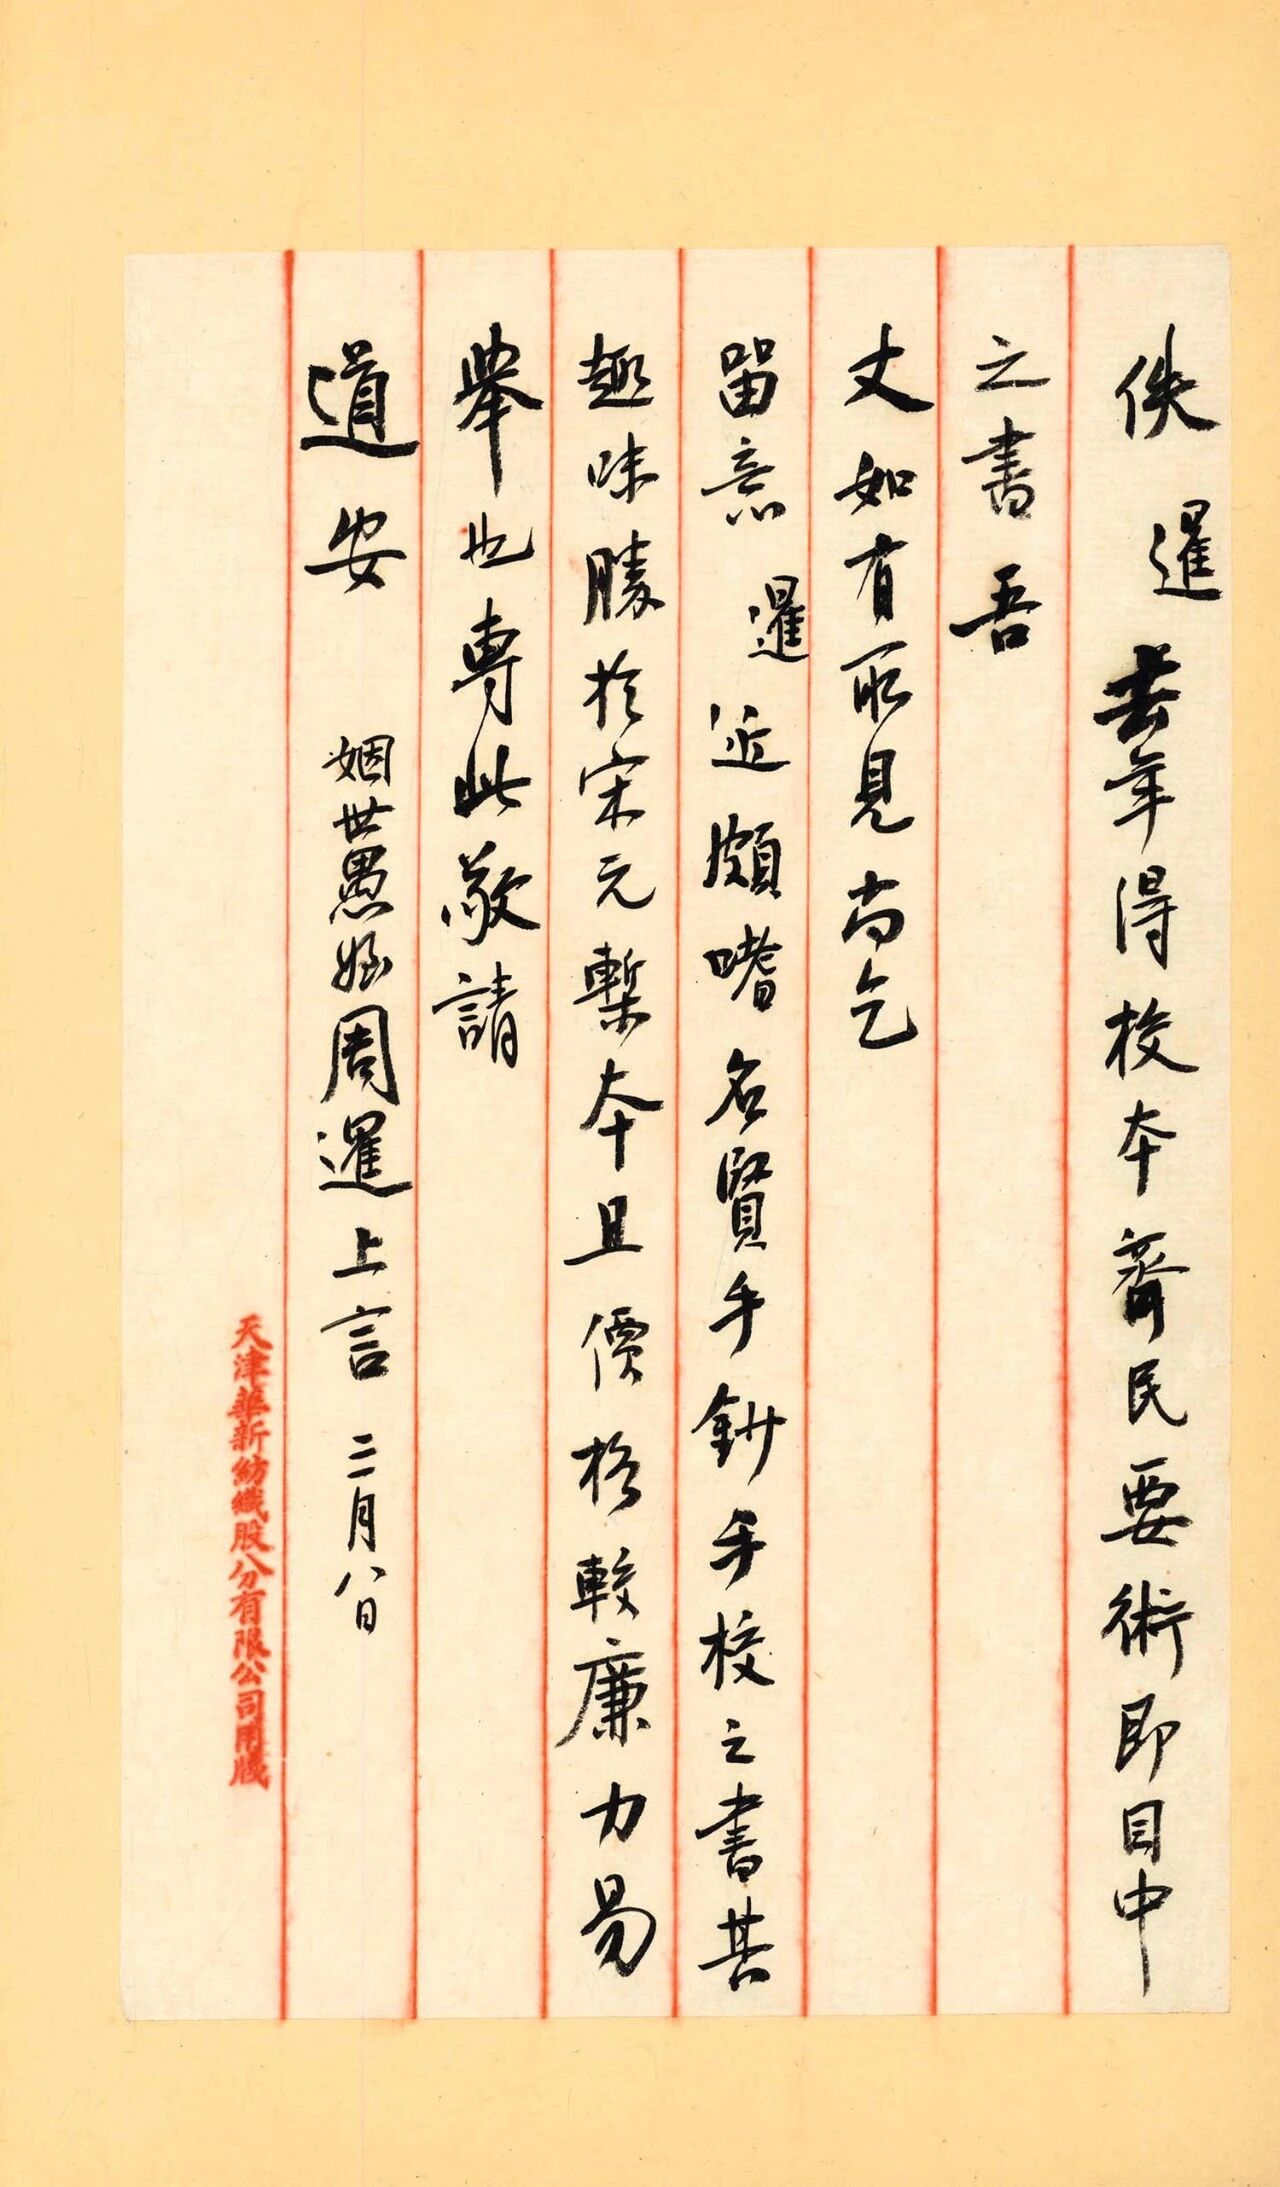 佚 暹去年得校本齊民要術即目中
之書吾
丈如有所見尚乞
留意 暹近頗嗜名賢手鈔手校之書其
趣味勝於宋元槧本且價格較廉力易
舉也專此敬請
道安 姻世愚姪周暹上言 二月八日
天津華新紡織股分有限公司用牋